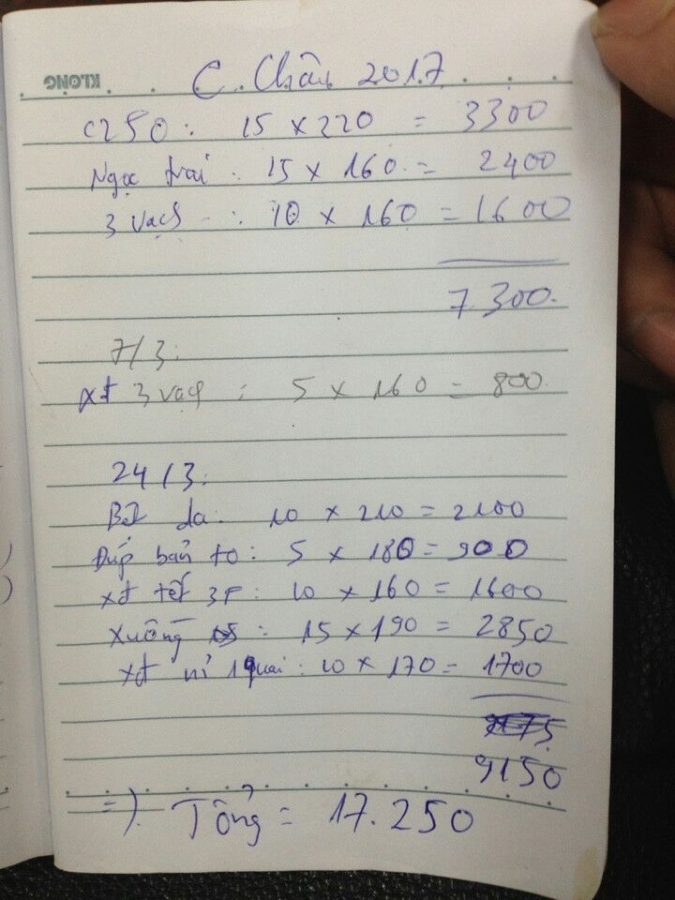 KLONG
C Châu 2017
C250: 15 x 220 = 3300
Ngọc trai: 15 x 160 = 2400
3 vạch: 10 x 160 = 1600
7.300.
7/3:
xđ 3 vạch: 5 x 160 = 800
24/3:
Bệt da: 10 x 210 = 2100
Đúp bản to: 5 x 180 = 900
xđ tết 3F: 10 x 160 = 1600
Xuồng: 15 x 190 = 2850
xđ nỉ 1 quai: 10 x 170 = 1700
9150
=). Tổng = 17.250